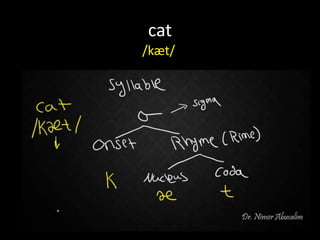 cat
/kæt/
syllable
cat
σ → sigma
/kæt/
Onset Rhyme (Rime)
K Nucleus Coda
æ t
Dr. Nimer Abusalim